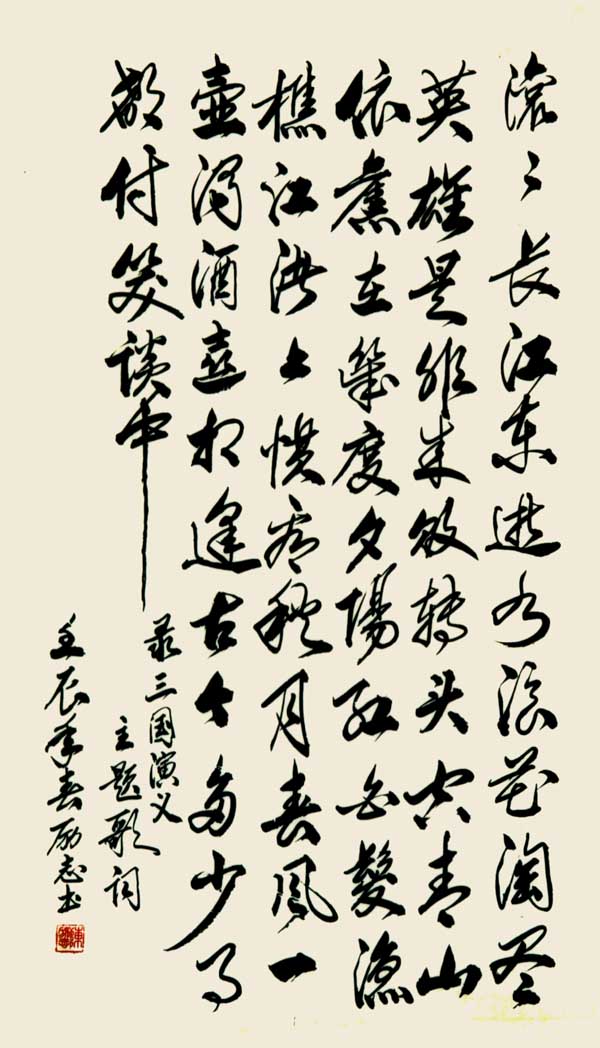 滚〻长江东逝水浪花淘尽
英雄是非成败转头空青山
依舊在幾度夕陽红白髮渔
樵江渚上惯看秋月春风一
壶浊酒喜相逢古今多少事
都付笑谈中
录三国演义
主题歌词
壬辰年春励志书